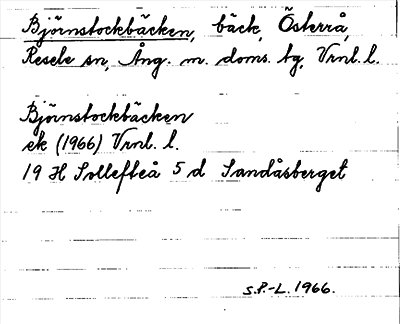 Björnstockbäcken, bäck, Österrå,
Resele sn, Ång. m. doms. tg, Vrnl. l.
Björnstockbäcken
ek (1966) Vrnl. l.
19 H Sollefteå 5 d Sandåsberget
S.P.-L. 1966.